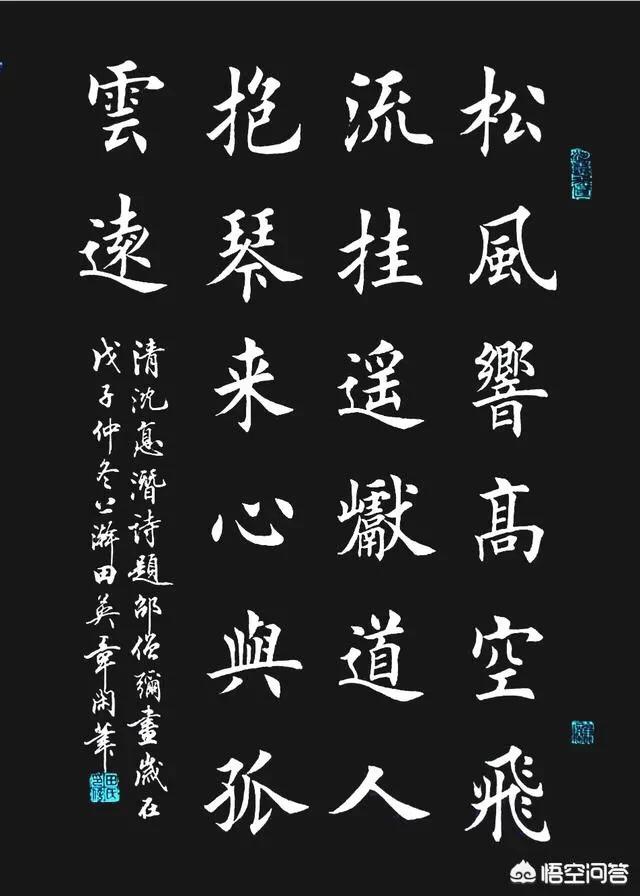 松風響高空飛
流挂遥巘道人
抱琴来心與孤
雲遠
清沈悳潛詩題邵僧彌畫歲在
戊子仲冬上澣田英章閑筆
悟空问答